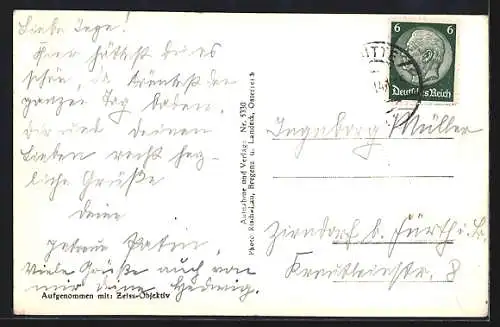 Liebe Inge!
Hier hättest du es
schön, da könntest den
ganzen Tag baden.
Dir und Deinen
Lieben recht herz-
liche Grüße
deine
Patin,
Viele Grüße auch von
mir deine Hedwig.
Aufgenommen mit: Zeiss-Objektiv
Aufnahme und Verlag: Nr. 5330
Photo Risch-Lau, Bregenz u. Landeck, Österreich
6 6
Deutsches Reich
Ingeborg Müller
Zirndorf b. Fürth i. B.
8